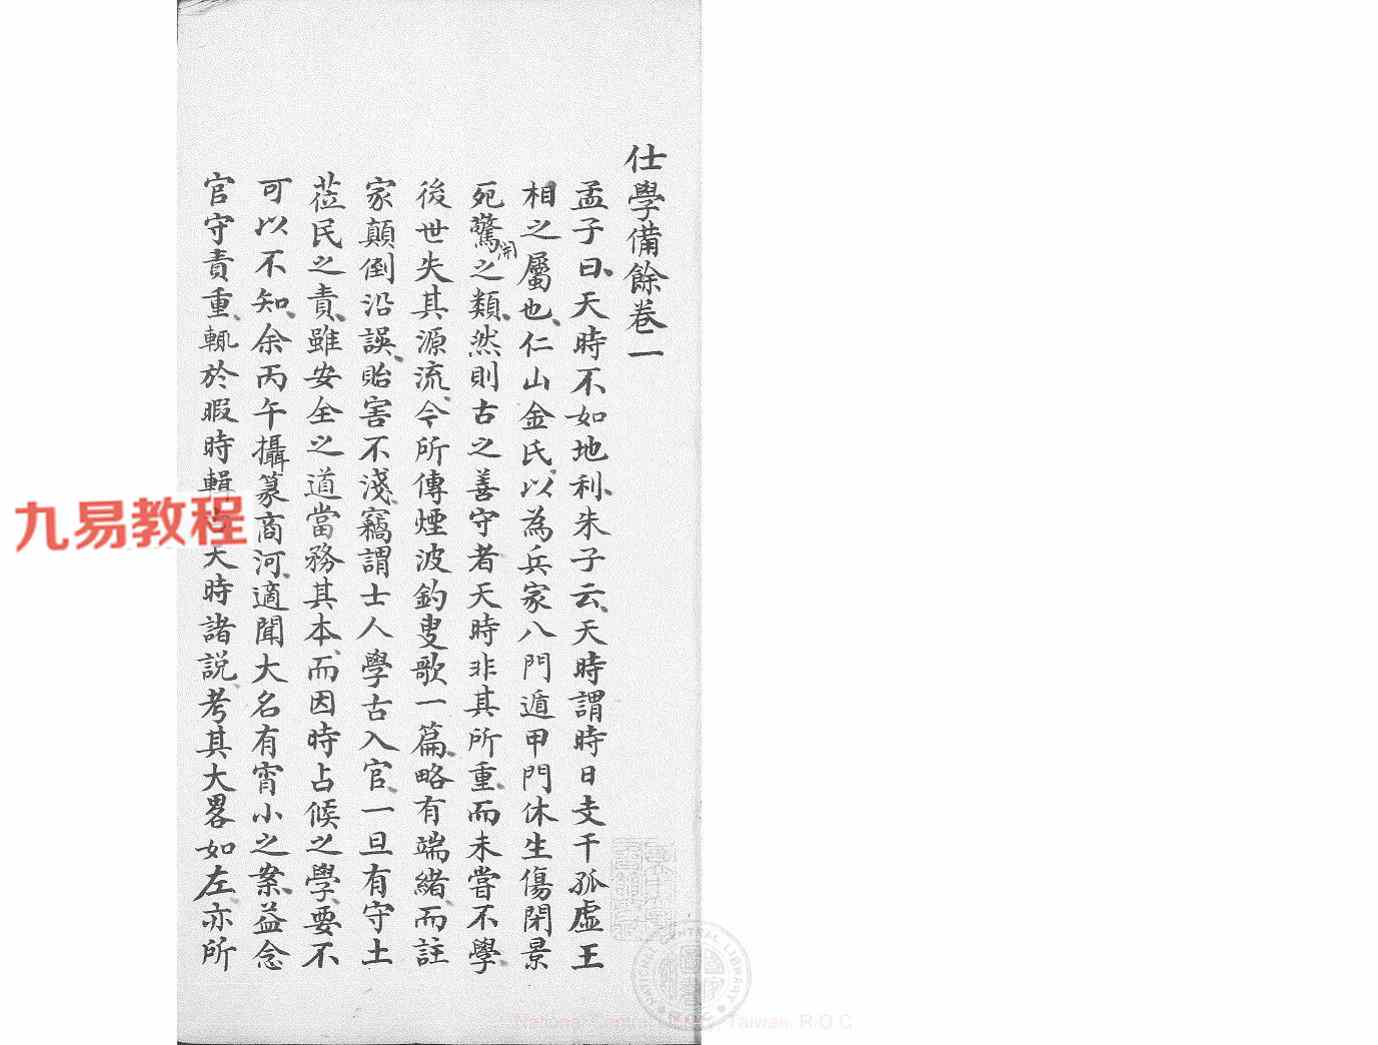 仕學備餘卷二
孟子曰天時不如地利朱子云天時謂時日支干孤虛王
相之屬也仁山金氏以為兵家八門遁甲門休生傷閉景
死驚開之類然則古之善守者天時非其所重而未嘗不學
後世失其源流今所傳煙波釣叟歌一篇略有端緒而註
家顛倒沿誤貽害不淺竊謂士人學古入官一旦有守土
蒞民之責雖安全之道當務其本而因時占候之學要不
可以不知余丙午攝篆商河適聞大名有宵小之案益念
官守責重輒於暇時輯天時諸説考其大畧如左亦所
九易教程
NATIONAL CENTRAL LIBRARY
National Central Library, Taiwan R.O.C